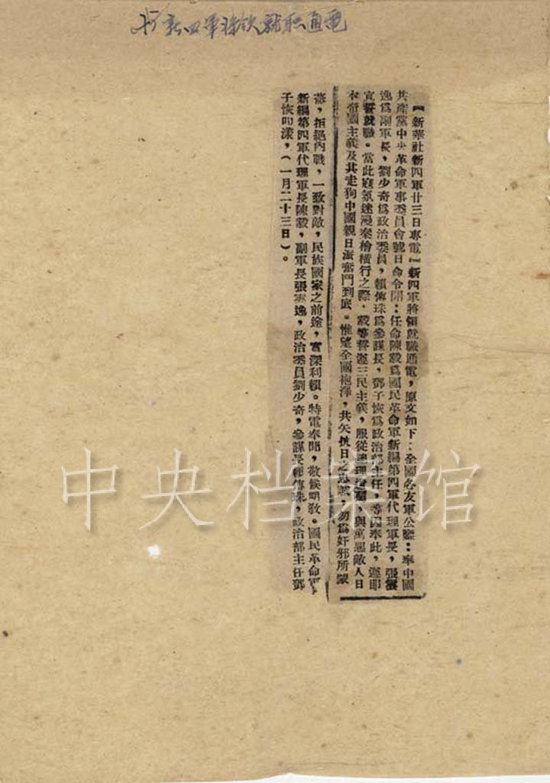 新四軍將領就職通電
『新華社新四軍廿三日專電』新四軍將領就職通電，原文如下：全國各友軍公鑒：奉中國
共產黨中央革命軍事委員會號日命令開：任命陳毅爲國民革命軍新編第四軍代理軍長，張雲
逸爲副軍長，劉少奇爲政治委員，賴傳珠爲參謀長，鄧子恢爲政治部主任，等因奉此，遵即
宣誓就職。當此寇氛迷漫秦檜橫行之際，毅等誓遵三民主義，服從總理遺囑，與萬惡敵人日
本帝國主義及其走狗中國親日派奮鬥到底。惟望全國袍澤，共矢抗日之忠誠，勿爲奸邪所蒙
蔽，拒絕內戰，一致對敵，民族國家之前途，實深利賴。特電奉聞，敬候明教。國民革命軍
新編第四軍代理軍長陳毅，副軍長張雲逸，政治委員劉少奇，參謀長賴傳珠，政治部主任鄧
子恢叩漾，（一月二十三日）。
中央档案馆